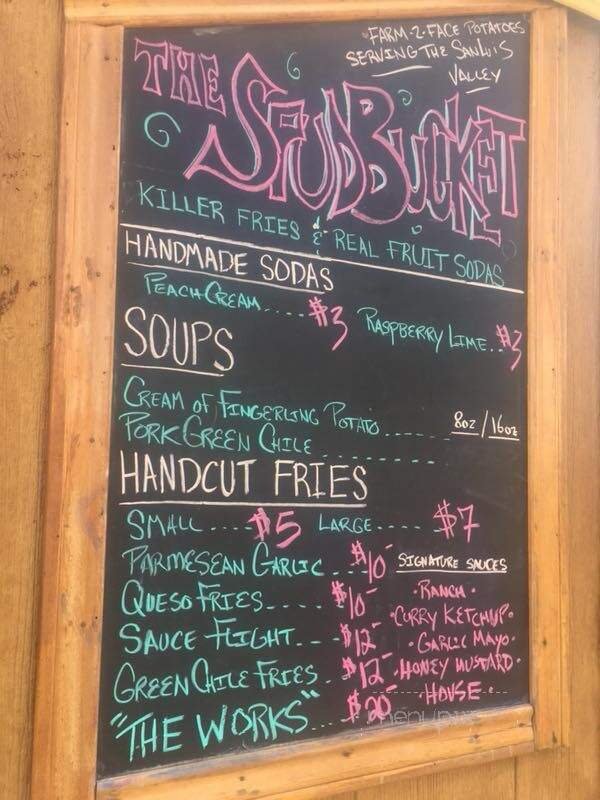 FARM-2-FACE POTATOES
SERVING THE SAN LUIS
VALLEY
THE
SPUDBUCKET
KILLER FRIES & REAL FRUIT SODAS
HANDMADE SODAS
PEACH CREAM.... $3
RASPBERRY LIME.. $3
SOUPS
CREAM OF FINGERLING POTATO.....
8oz/16oz
PORK GREEN CHILE........
HANDCUT FRIES
SMALL .... $5 LARGE..... $7
PARMESEAN GARLIC... $10-
QUESO FRIES..... $10-
SAUCE FLIGHT... $12-
GREEN CHILE FRIES. $12-
"THE WORKS".. $20
SIGNATURE SAUCES
•RANCH•
•CURRY KETCHUP•
•GARLIC MAYO•
•HONEY MUSTARD•
•HOUSE•
menupix